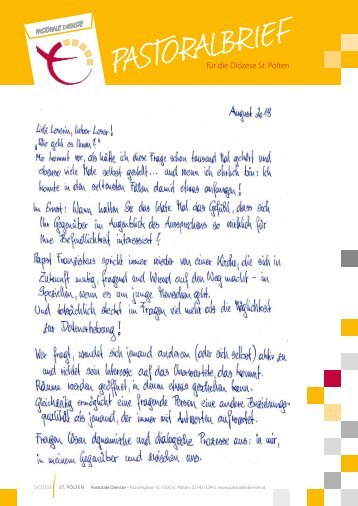 PASTORALE DIENSTE
PASTORALBRIEF
für die Diözese St. Pölten
August 2018
Liebe Leserin, lieber Leser!
"Wie geht es Ihnen?"
Mir kommt vor, als hätte ich diese Frage schon tausend Mal gehört und
ebenso viele Male selbst gestellt... und wenn ich ehrlich bin: Ich
konnte in den seltensten Fällen damit etwas anfangen!
Im Ernst: Wann hatten Sie das letzte Mal das Gefühl, dass sich
Ihr Gegenüber im Augenblick des Aussprechens so wirklich für
Ihre Befindlichkeit interessiert?
Papst Franziskus spricht immer wieder von einer Kirche, die sich in
Zukunft mutig, fragend und hörend auf den Weg macht - im
Speziellen, wenn es um junge Menschen geht.
Und tatsächlich steckt im Fragen viel mehr als die Möglichkeit
zur Datenerhebung!
Wer fragt, wendet sich jemand anderen (oder sich selbst) aktiv zu
und richtet sein Interesse auf das Unerwartete, das kommt.
Räume werden geöffnet, in denen etwas geschehen kann.
Gleichzeitig ermöglicht eine fragende Person eine andere Beziehungs-
qualität als jemand, der immer mit Antworten aufwartet.
Fragen lösen dynamische und dialogische Prozesse aus: in mir,
in meinem Gegenüber und zwischen uns.
DIÖZESE ST. PÖLTEN Pastorale Dienste – Klostergasse 15, 3100 St. Pölten, 02742/324-0, www.pastoraledienste.at